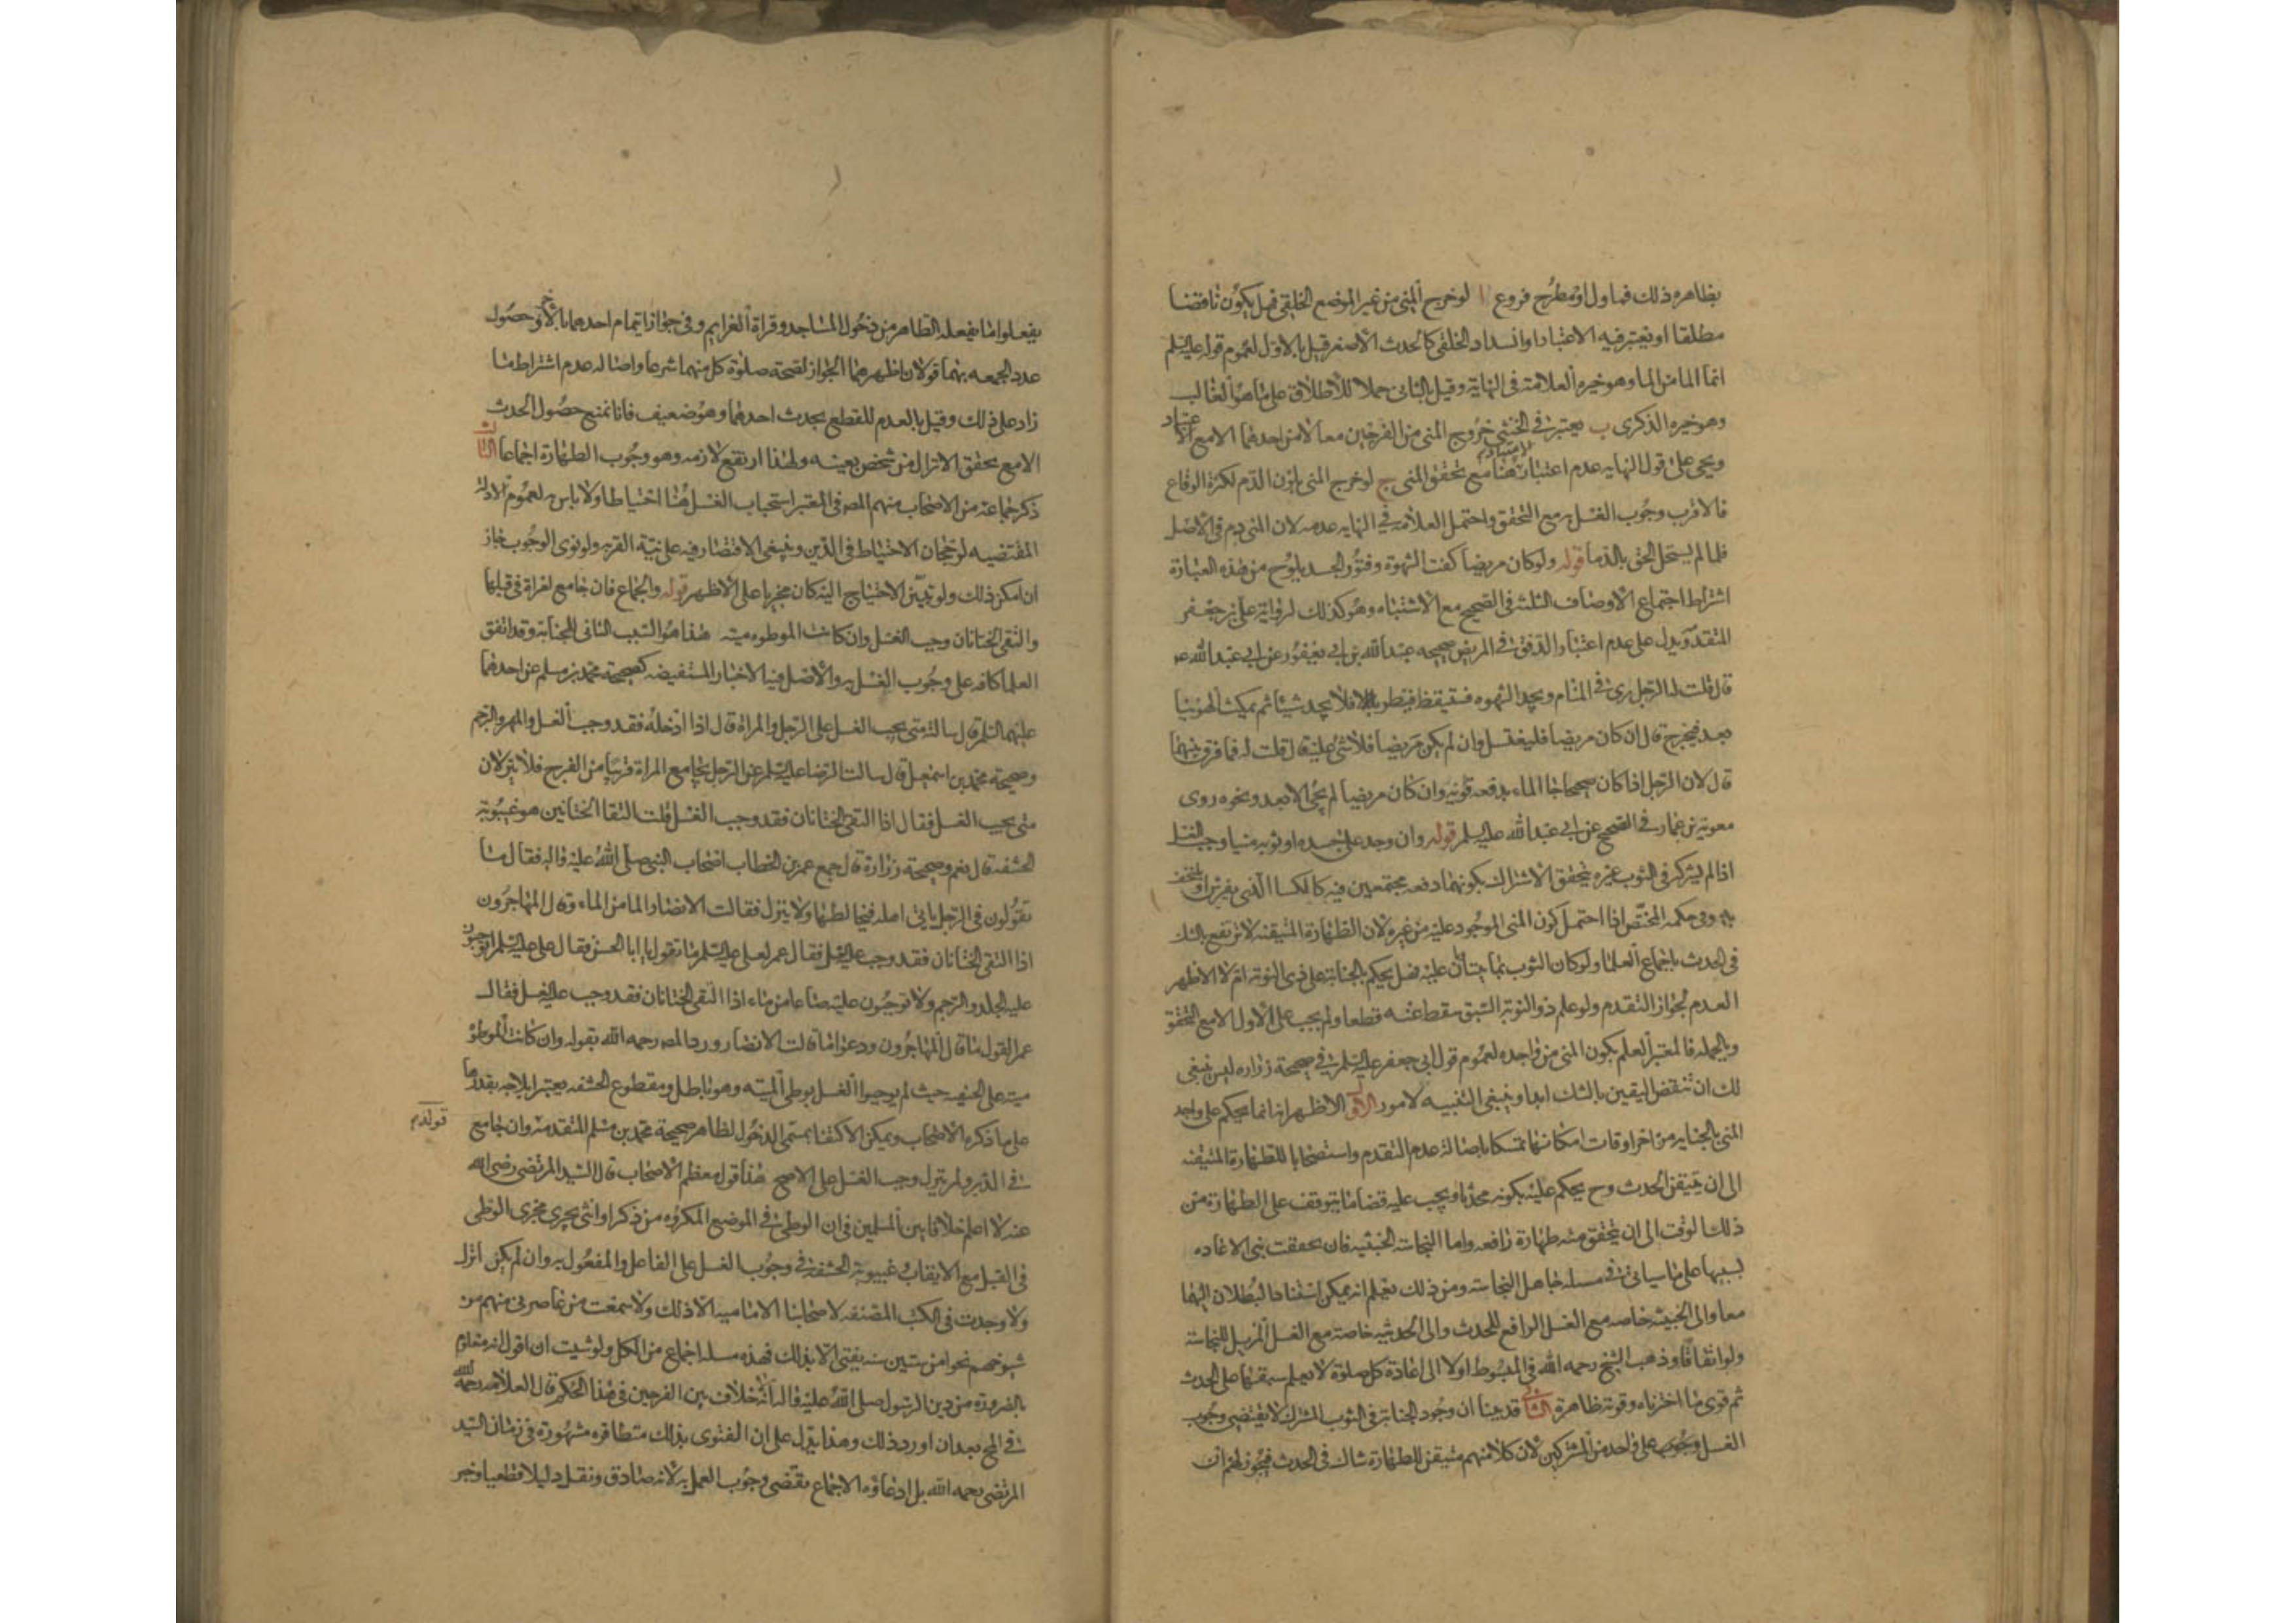 بظاهره ذلك فماول او مطرح فروع ا لو خرج المني من غير الموضع الخلقي فهل يكون ناقضا
مطلقا او يعتبر فيه الاعتياد او انسداد الخلقي كالحدث الاصغر قيل بالاول لعموم قوله عليه السلم
انما الما من الما وهو خيره العلامة في النهاية وقيل بالثاني حملا للاطلاق على ما هو الغالب
وهو خيره الذكرى ب يعتبر في الخنثى خروج المني من الفرجين معا لا من احدهما الا مع الاعتياد
ويجي على قول النهايه عدم اعتبار الاعتياد هنا مع تحقق المني ج لو خرج المني بلون الدم لكثرة الوقاع
فالاقرب وجوب الغسل به مع التحقق واحتمل العلامة في النهايه عدمه لان المني دم في الاصل
فلما لم يستحل الحق بالدما قوله ولو كان مريضا كفت الشهوة وفتور الجسد يلوح من هذه العبارة
اشتراط اجتماع الاوصاف الثلثة في الصحيح مع الاشتباه وهو كذلك لرواية علي بن جعفر
المتقدمة ويدل على عدم اعتبار الدفق في المريض صحيحه عبد الله بن ابي يعفور عن ابي عبد الله ع
قال قلت له الرجل يرى في المنام ويجد الشهوه فستيقظ فينظر فلا يجد شيئا ثم يمكث الهوينا
بعد فيخرج قال ان كان مريضا فليغتسل وان لم يكن مريضا فلا شي عليه قال قلت له فما فرق بينهما
قال لان الرجل اذا كان صحيحا جا الماء بدفعه قويه وان كان مريضا لم يجي الا بعد ونحوه روى
معوية بن عمار في الصحيح عن ابي عبد الله عليه السلم قوله وان وجد على جسده او ثوبه منيا وجب الغسل
اذا لم يشركه في الثوب غيره يتحقق الاشتراك بكونهما دفعه مجتمعين فيه كالكسا الذي يفرش او يلتحف
به وفي حكمه المختص اذا احتمل كون المني الموجود عليه من غيره لان الطهارة المتيقنه لا ترتفع بالشك
في الحدث باجماع العلما ولو كان الثوب يتناوبان عليه فهل يحكم بالجنابة على ذي النوبة ام لا الاظهر
العدم لجواز التقدم ولو علم ذو النوبة السبق سقط عنه قطعا ولم يجب على الاول الا مع التحقق
وبالجمله فالمعتبر العلم بكون المني من واجده لعموم قول ابي جعفر عليه السلم في صحيحة زراره ليس ينبغي
لك ان تنقض اليقين بالشك ابدا وينبغي التنبيه لامور الاول الاظهر انه انما يحكم على واجد
المني بالجنابه من اخر اوقات امكانها تمسكا باصالة عدم التقدم واستصحابا للطهارة المتيقنه
الى ان يتيقن الحدث وح يحكم عليه بكونه محدثا ويجب عليه قضا ما يتوقف على الطهارة من
ذلك الوقت الى ان يتحقق منه طهارة رافعه واما النجاسة الخبثيه فان تحققت بني الاعاده
بسببها على ما سياتي في مسله جاهل النجاسة ومن ذلك يعلم انه يمكن استناد البطلان اليهما
معا والى الخبثيه خاصه مع الغسل الرافع للحدث والى الحدثيه خاصة مع الغسل المزيل للنجاسة
ولو اتفاقا وذهب الشيخ رحمه الله في المبسوط اولا الى اعادة كل صلوة لا يعلم سبقها على الحدث
ثم قوى ما اخترناه وقوته ظاهرة الثاني قد بينا ان وجود الجنابة في الثوب المشترك لا يقتضي وجوب
الغسل على واحد من المشتركين لان كلا منهم متيقن للطهارة شاك في الحدث فيجوز لهم ان
يفعلوا ما يفعله الطاهر من دخول المساجد وقراة العزايم وفي جواز ايتمام احدهما بالاخر وحصول
عدد الجمعه بهما قولان اظهرهما الجواز لصحة صلوة كل منهما شرعا واصاله عدم اشتراط ما
زاد على ذلك وقيل بالعدم للقطع بحدث احدهما وهو ضعيف فانا نمنع حصول الحدث
الا مع تحقق الانزال من شخص بعينه ولهذا ارتفع لازمه وهو وجوب الطهارة اجماعا الثالث
ذكر جماعة من الاصحاب منهم المصه في المعتبر استحباب الغسل هنا احتياطا ولا باس به لعموم الادلة
المقتضيه لرجحان الاحتياط في الدين وينبغي الاقتصار فيه على نية القربه ولو نوى الوجوب جاز
ان امكن ذلك ولو تبين الاحتياج اليه كان مجزيا على الاظهر قوله والجماع فان جامع امراة في قبلها
والتقى الختانان وجب الغسل وان كانت الموطوه ميته هذا هو السبب الثاني للجنابة وقد اتفق
العلما كافه على وجوب الغسل به والاصل فيه الاخبار المستفيضه كصحيحة محمد بن مسلم عن احدهما
عليهما السلم قال سالته متى يجب الغسل على الرجل والمراة قال اذا ادخله فقد وجب الغسل والمهر والرجم
وصحيحة محمد بن اسمعيل قال سالت الرضا عليه السلم عن الرجل يجامع المراة قريبا من الفرج فلا ينزلان
متى يجب الغسل فقال اذا التقى الختانان فقد وجب الغسل قلت التقا الختانين هو غيبوبة
الحشفه قال نعم وصحيحة زرارة قال جمع عمر بن الخطاب اصحاب النبي صلى الله عليه واله فقال ما
تقولون في الرجل ياتي اهله فيخالطها ولا ينزل فقالت الانصار الما من الماء وقال المهاجرون
اذا التقى الختانان فقد وجب عليه الغسل فقال عمر لعلي عليه السلم ما تقول يا ابا الحسن فقال علي عليه السلم اتوجبون
عليه الجلد والرجم ولا توجبون عليه صاعا من ماء اذا التقى الختانان فقد وجب عليه الغسل فقال
عمر القول ما قال المهاجرون ودعوا ما قالت الانصار ورد المصه رحمه الله بقوله وان كانت الموطوة
ميته على الحنفيه حيث لم يوجبوا الغسل بوطي الميته وهو باطل ومقطوع الحشفه يعتبر ايلاجه بقدرها
على ما ذكره الاصحاب ويمكن الاكتفا بمسمى الدخول لظاهر صحيحة محمد بن مسلم المتقدمة وان جامع
قوله م
في الدبر ولم ينزل وجب الغسل على الاصح هذا قول معظم الاصحاب قال السيد المرتضى رضي الله
عنه لا اعلم خلافا بين المسلمين في ان الوطي في الموضع المكروه من ذكر او انثى يجري مجرى الوطي
في القبل مع الايقاب وغيبوبة الحشفة في وجوب الغسل على الفاعل والمفعول به وان لم يكن انزل
ولا وجدت في الكتب المصنفه لاصحابنا الاماميه الا ذلك ولا سمعت من عاصرني منهم من
شيوخهم نحوا من ستين سنه يفتي الا بذلك فهذه مسلة اجماع من الكل ولو شيت ان اقول انه معلوم
بالضرورة من دين الرسول صلى الله عليه واله انه لا خلاف بين الفرجين في هذا الحكم قال العلامه رحمه الله
في المخ بعد ان اورد ذلك وهذا يدل على ان الفتوى بذلك متظافره مشهورة في زمان السيد
المرتضى رحمه الله بل ادعاؤه الاجماع يقتضي وجوب العمل به لانه صادق ونقل دليلا قطعيا وخبر